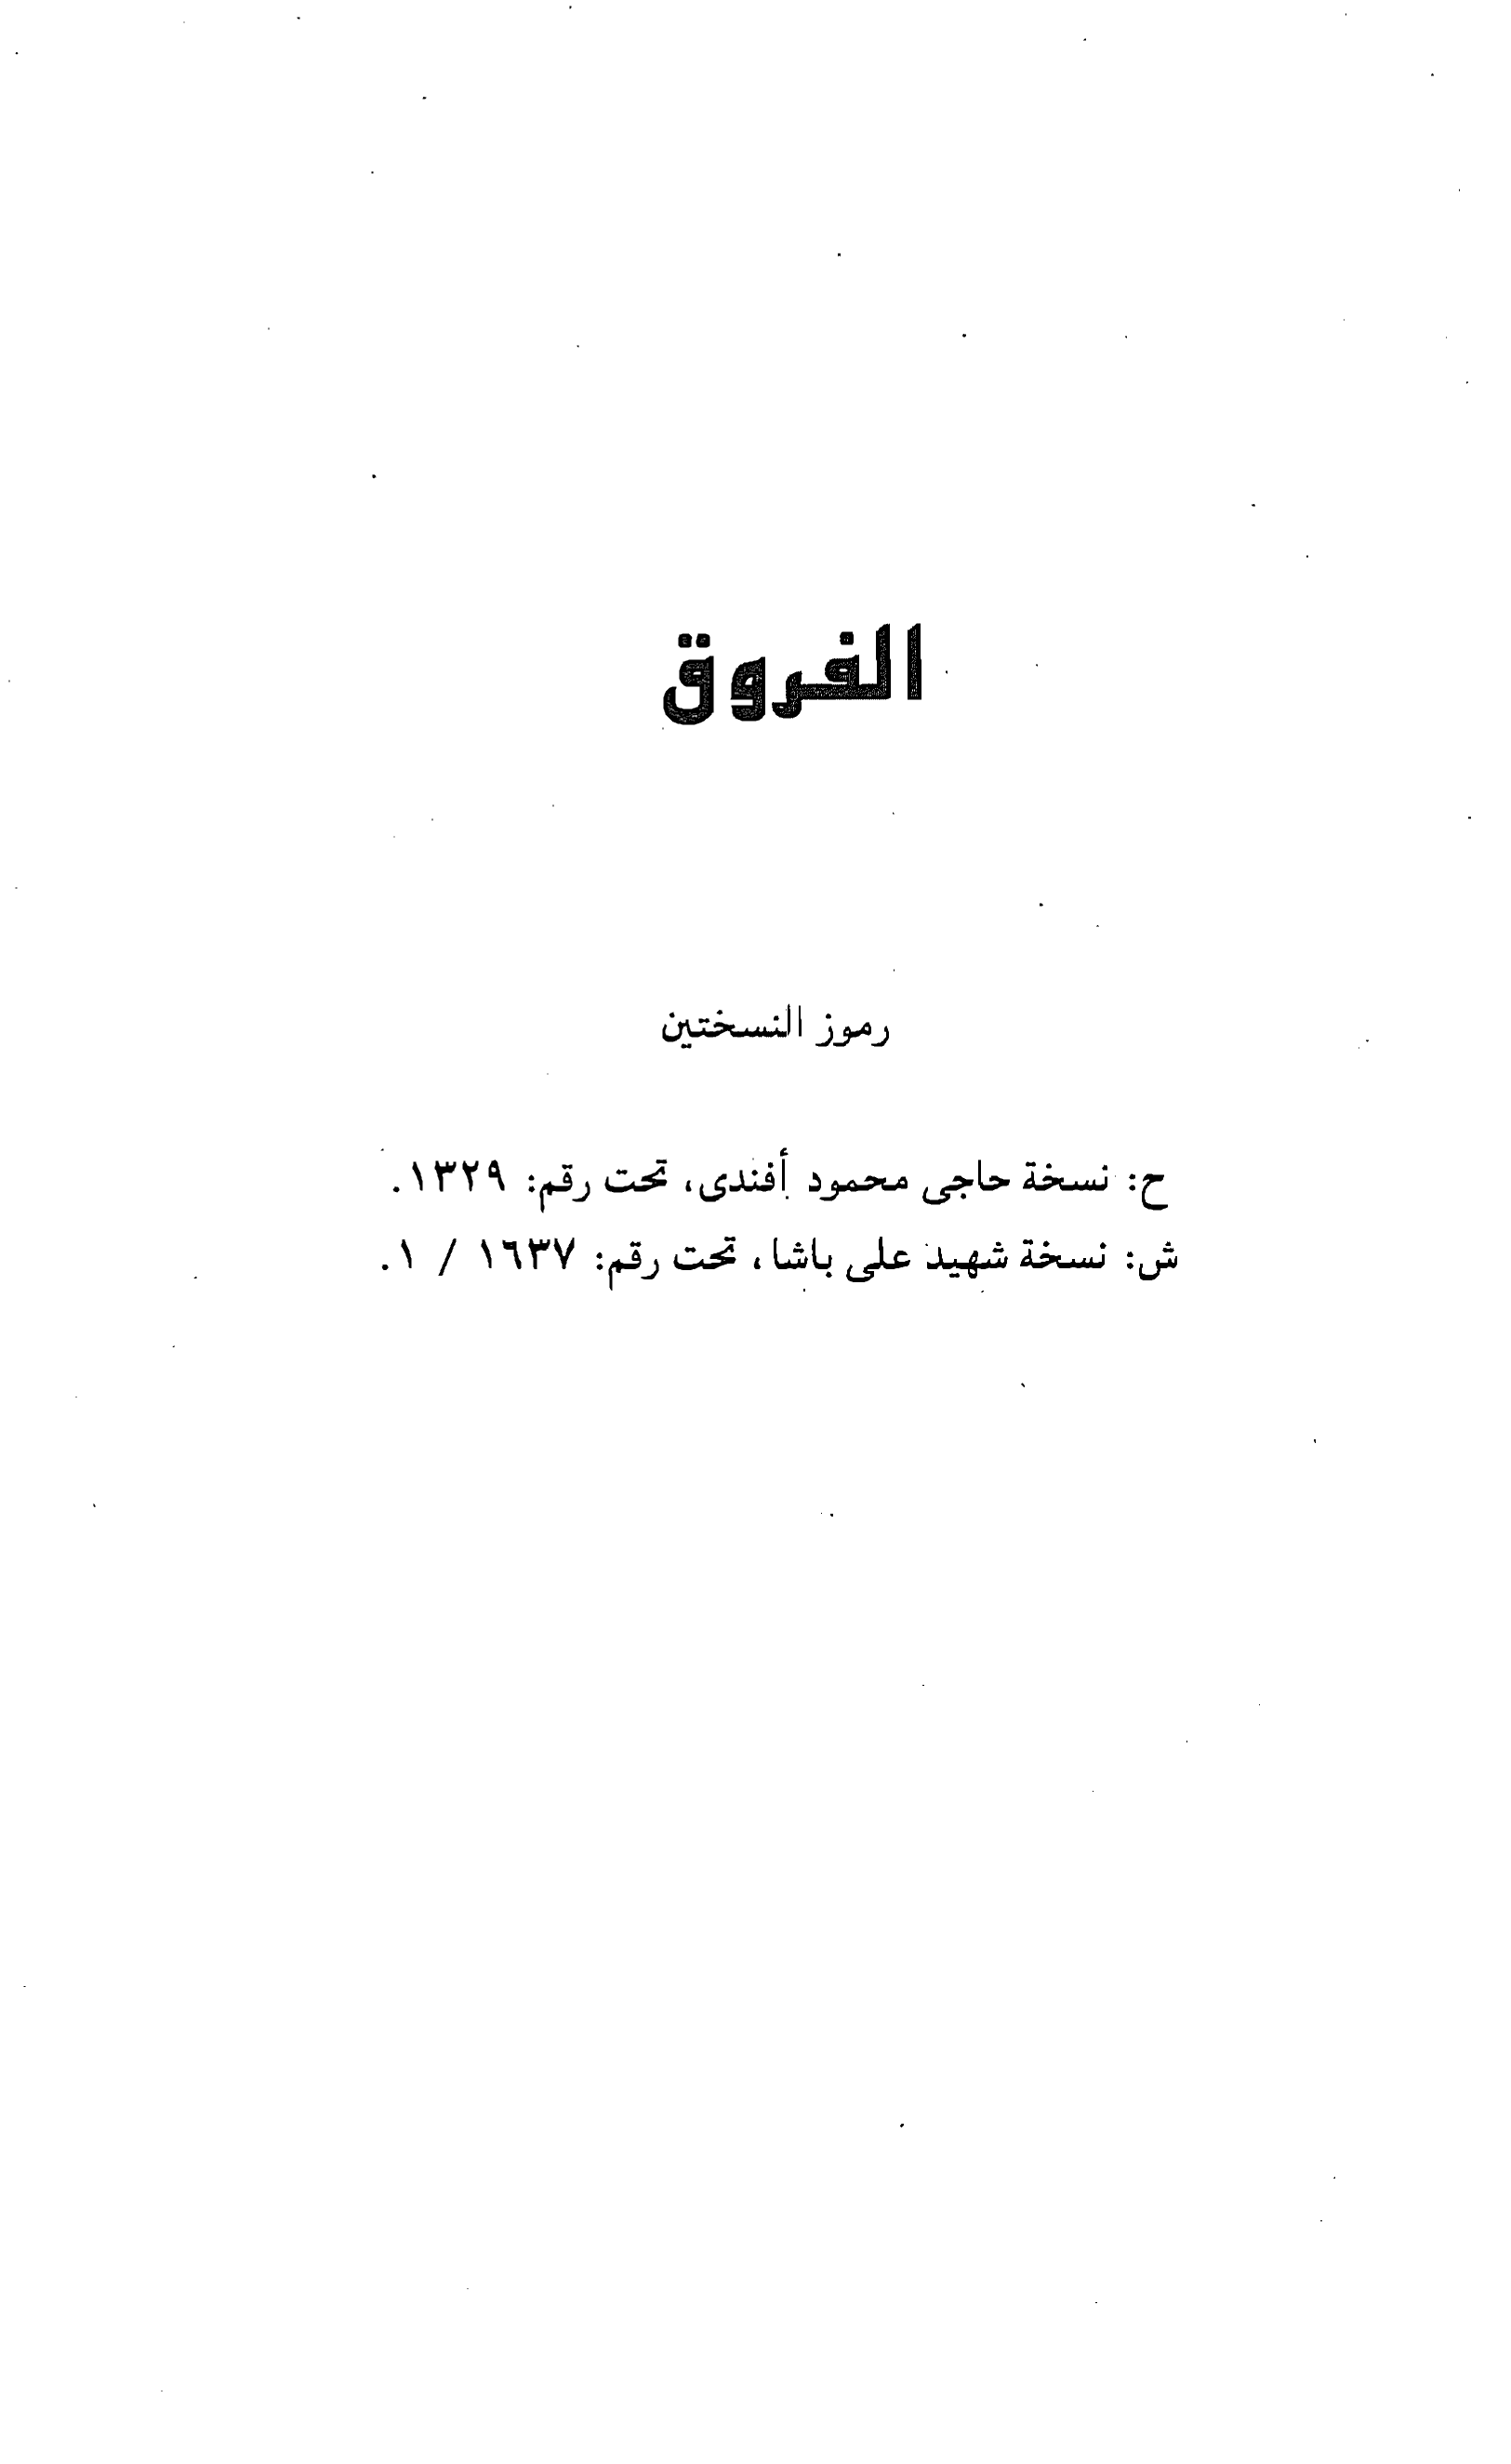 الفروق
رموز النسختين
ح: نسخة حاجى محمود أفندى، تحت رقم: ١٣٢٩.
ش: نسخة شهيد على باشا، تحت رقم: ١٦٣٧ / ١.